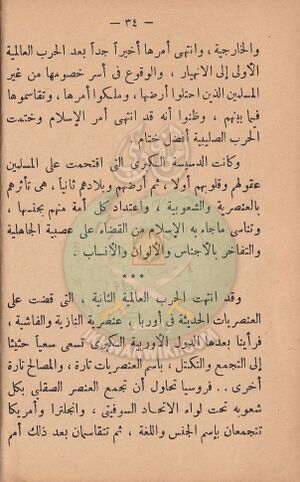 — ٣٤ —
والخارجية ، وانتهى أمرها أخيراً جداً بعد الحرب العالمية
الأولى إلى الانهيار ، والوقوع في أسر خصومها من غير
المسلمين الذين احتلوا أرضها ، وملكوا أمرها ، وتقاسموها
فيما بينهم ، وظنوا أنه قد انتهى أمر الإسلام وختمت
الحرب الصليبية أفضل ختام .
وكانت الدسيسة الكبرى التي اقتحمت على المسلمين
عقولهم وقلوبهم أولا ، ثم أرضهم وبلادهم ثانياً ، هى تأثرهم
بالعنصرية والشعوبية ، واعتداد كل أمة منهم بجنسها ،
وتناسى ماجاء به الإسلام من القضاء على عصبية الجاهلية
والتفاخر بالأجناس والألوان والأنساب .
***
وقد انتهت الحرب العالمية الثانية ، التى قضت على
العنصريات الحديثة فى أوربا ، عنصرية النازية والفاشية ،
فرأينا بعدها الدول الأوربية الكبرى تسعى سعياً حثيثا
إلى التجمع والتكتل ، باسم العنصريات تارة ، والمصالح تارة
أخرى .. فروسيا تحاول أن تجمع العنصر الصقلبى بكل
شعوبه تحت لواء الاتحاد السوفيتى ، وانجلترا وأمريكا
تتجمعان بإسم الجنس واللغة ، ثم تتقاسمان بعد ذلك أمم